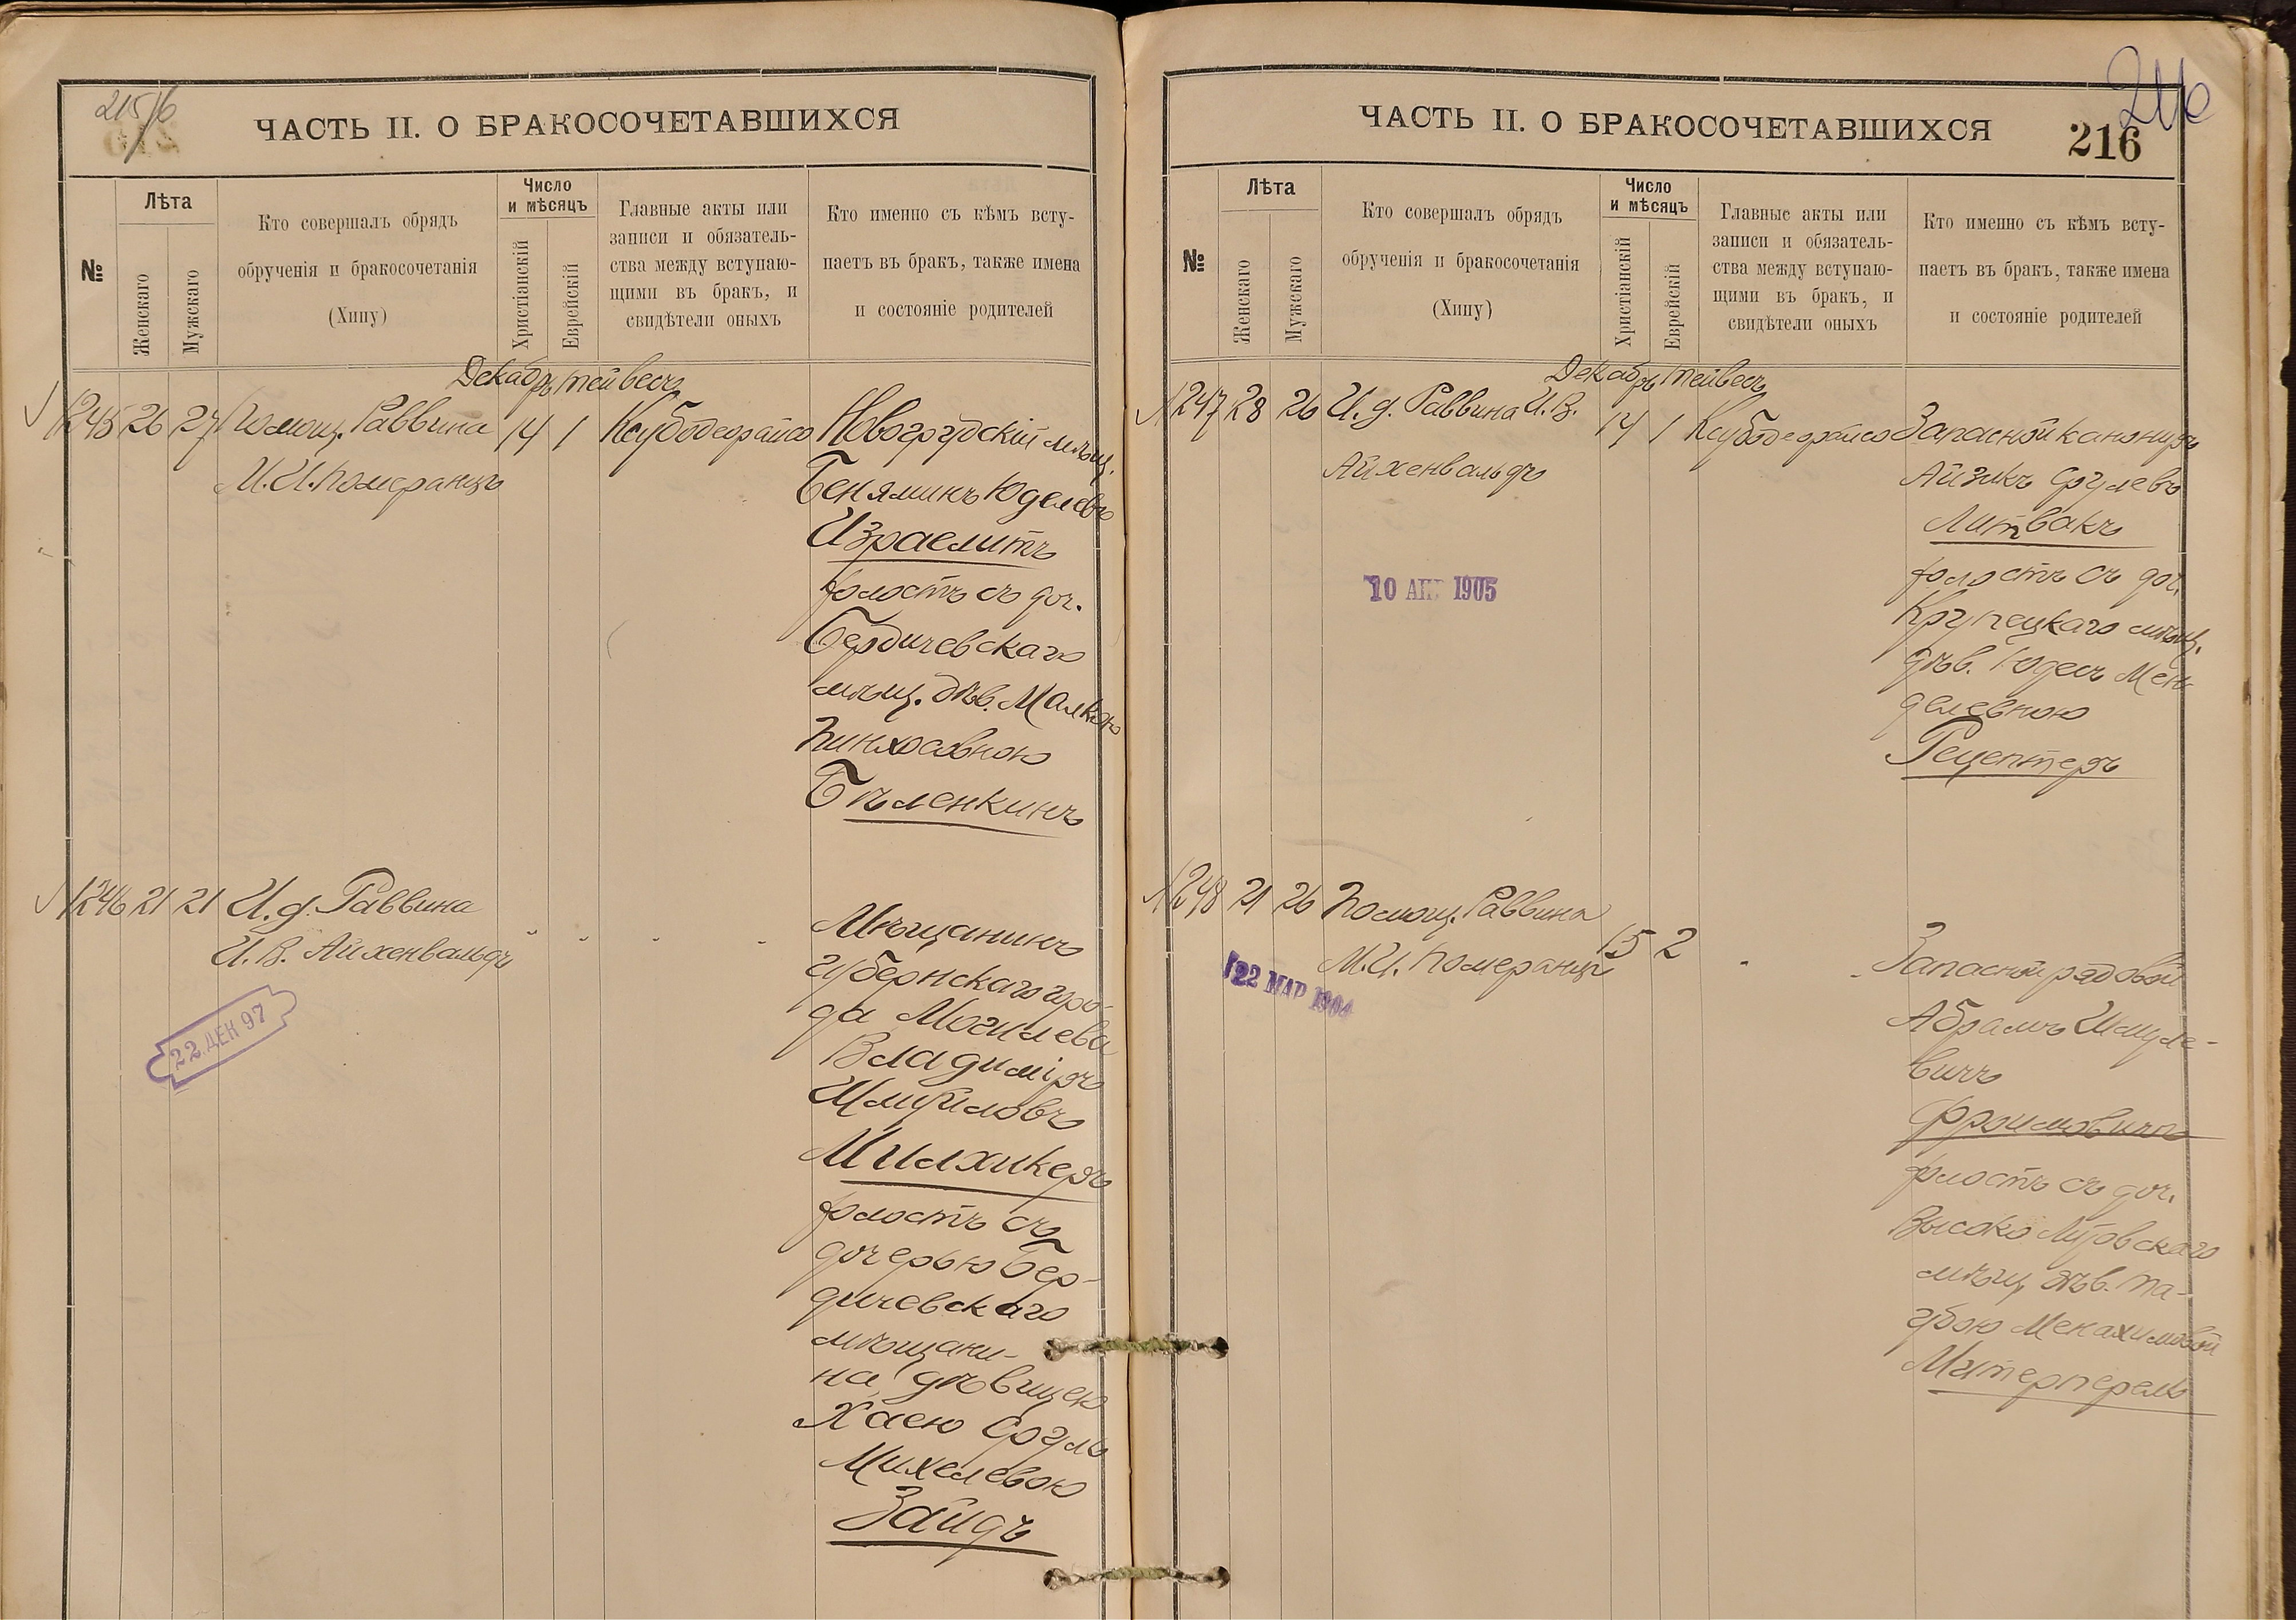 215/6
ЧАСТЬ II. О БРАКОСОЧЕТАВШИХСЯ
№
Лѣта
Женскаго
Мужскаго
Кто совершалъ обрядъ
обрученія и бракосочетанія
(Хипу)
Число
и мѣсяцъ
Христіанскій
Еврейскій
Главные акты или
записи и обязатель-
ства между вступаю-
щими въ бракъ, и
свидѣтели оныхъ
Кто именно съ кѣмъ всту-
паетъ въ бракъ, также имена
и состояніе родителей
Декабрь тейвесъ
1245 26 27 Помощ. Раввина 14 1 Ксубодеорайсо
М. И. Померанцъ
Новогрудскій мѣщ.
Беняминъ Юделевъ
Израелитъ
холостъ съ доч.
Бердичевскаго
мѣщ. дѣв. Малкою
Пинхосовною
Бѣленкинъ
1246 21 21 И. д. Раввина " " " "
И. В. Айхенвальдъ
22 ДЕК 97
Мѣщанинъ
губернскаго горо-
да Могилева
Владиміръ
Шмуйловъ
Милхикеръ
холостъ съ
дочерью Бер-
дичевскаго
мѣщани-
на дѣвицею
Хаею Сруль
Михелевою
Зайдъ
ЧАСТЬ II. О БРАКОСОЧЕТАВШИХСЯ
216
216
№
Лѣта
Женскаго
Мужскаго
Кто совершалъ обрядъ
обрученія и бракосочетанія
(Хипу)
Число
и мѣсяцъ
Христіанскій
Еврейскій
Главные акты или
записи и обязатель-
ства между вступаю-
щими въ бракъ, и
свидѣтели оныхъ
Кто именно съ кѣмъ всту-
паетъ въ бракъ, также имена
и состояніе родителей
Декабрь тейвесъ
1247 28 26 И. д. Раввина И. В. 14 1 Ксубодеорайсо
Айхенвальдъ
10 АПР 1905
Запасной канониръ
Айзикъ Срулевъ
Литвакъ
холостъ съ доч.
Крупецкаго мѣщ.
дѣв. Юдесъ Мен
делевною
Рецептеръ
1248 21 26 Помощ. Раввина 15 2 " "
М. И. Померанцъ
22 МАР 1904
Запасной рядовой
Абрамъ Шмуле-
вичъ
Фроимовичъ
холостъ съ доч.
Высоко Литовскаго
мѣщ. дѣв. Та-
убою Менахимовой
Митерперель